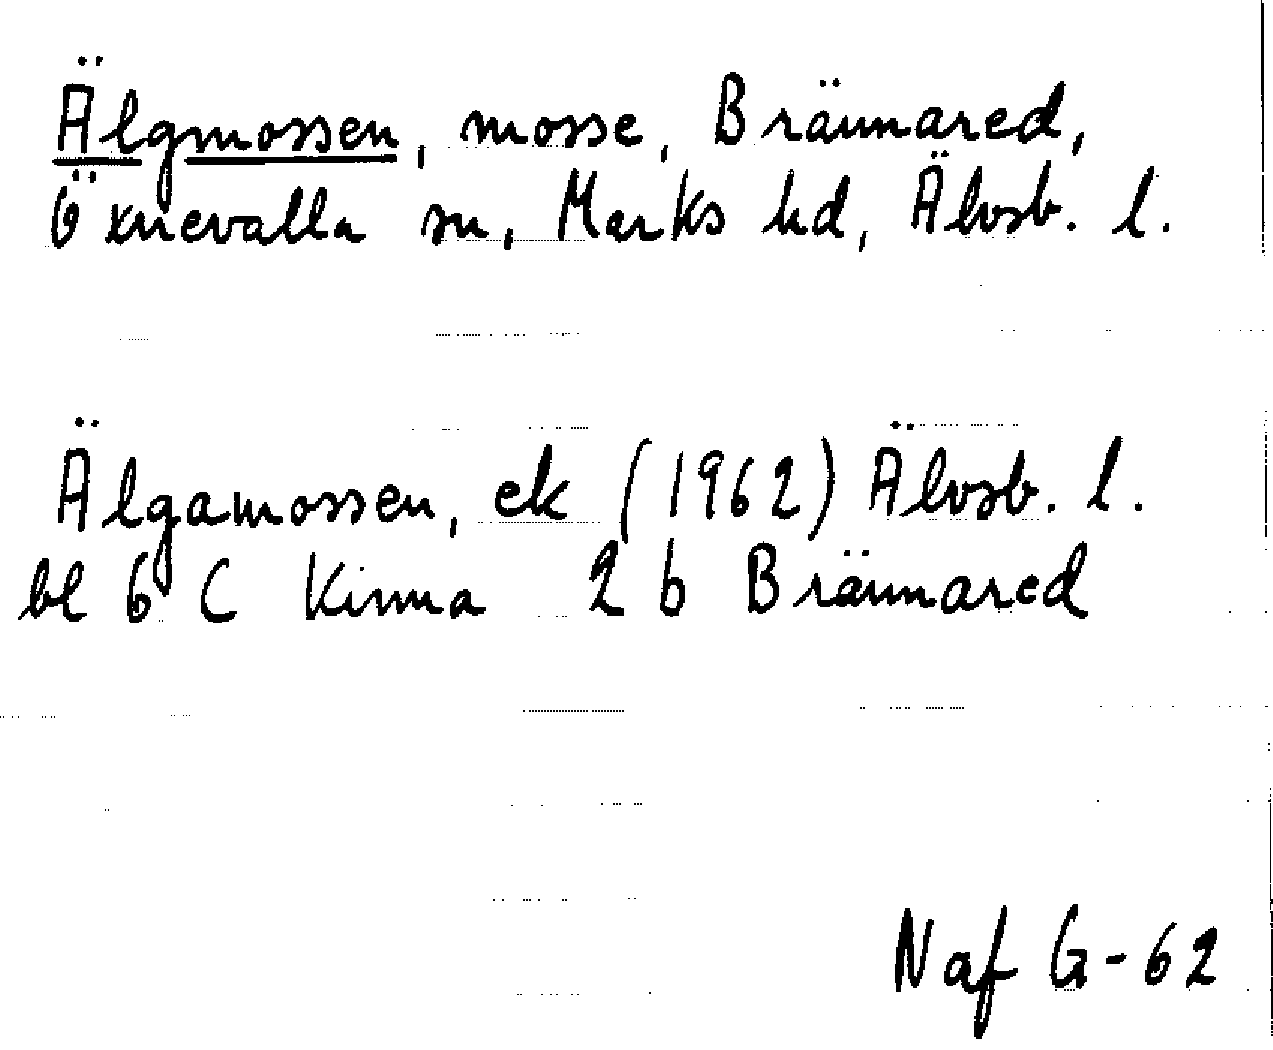 Älgmossen, mosse, Brännared,
Öxnevalla sn, Marks hd, Älvsb. l.
Älgamossen, ek (1962) Älvsb. l.
bl 6 C Kinna 2 b Brännared
Naf G-62